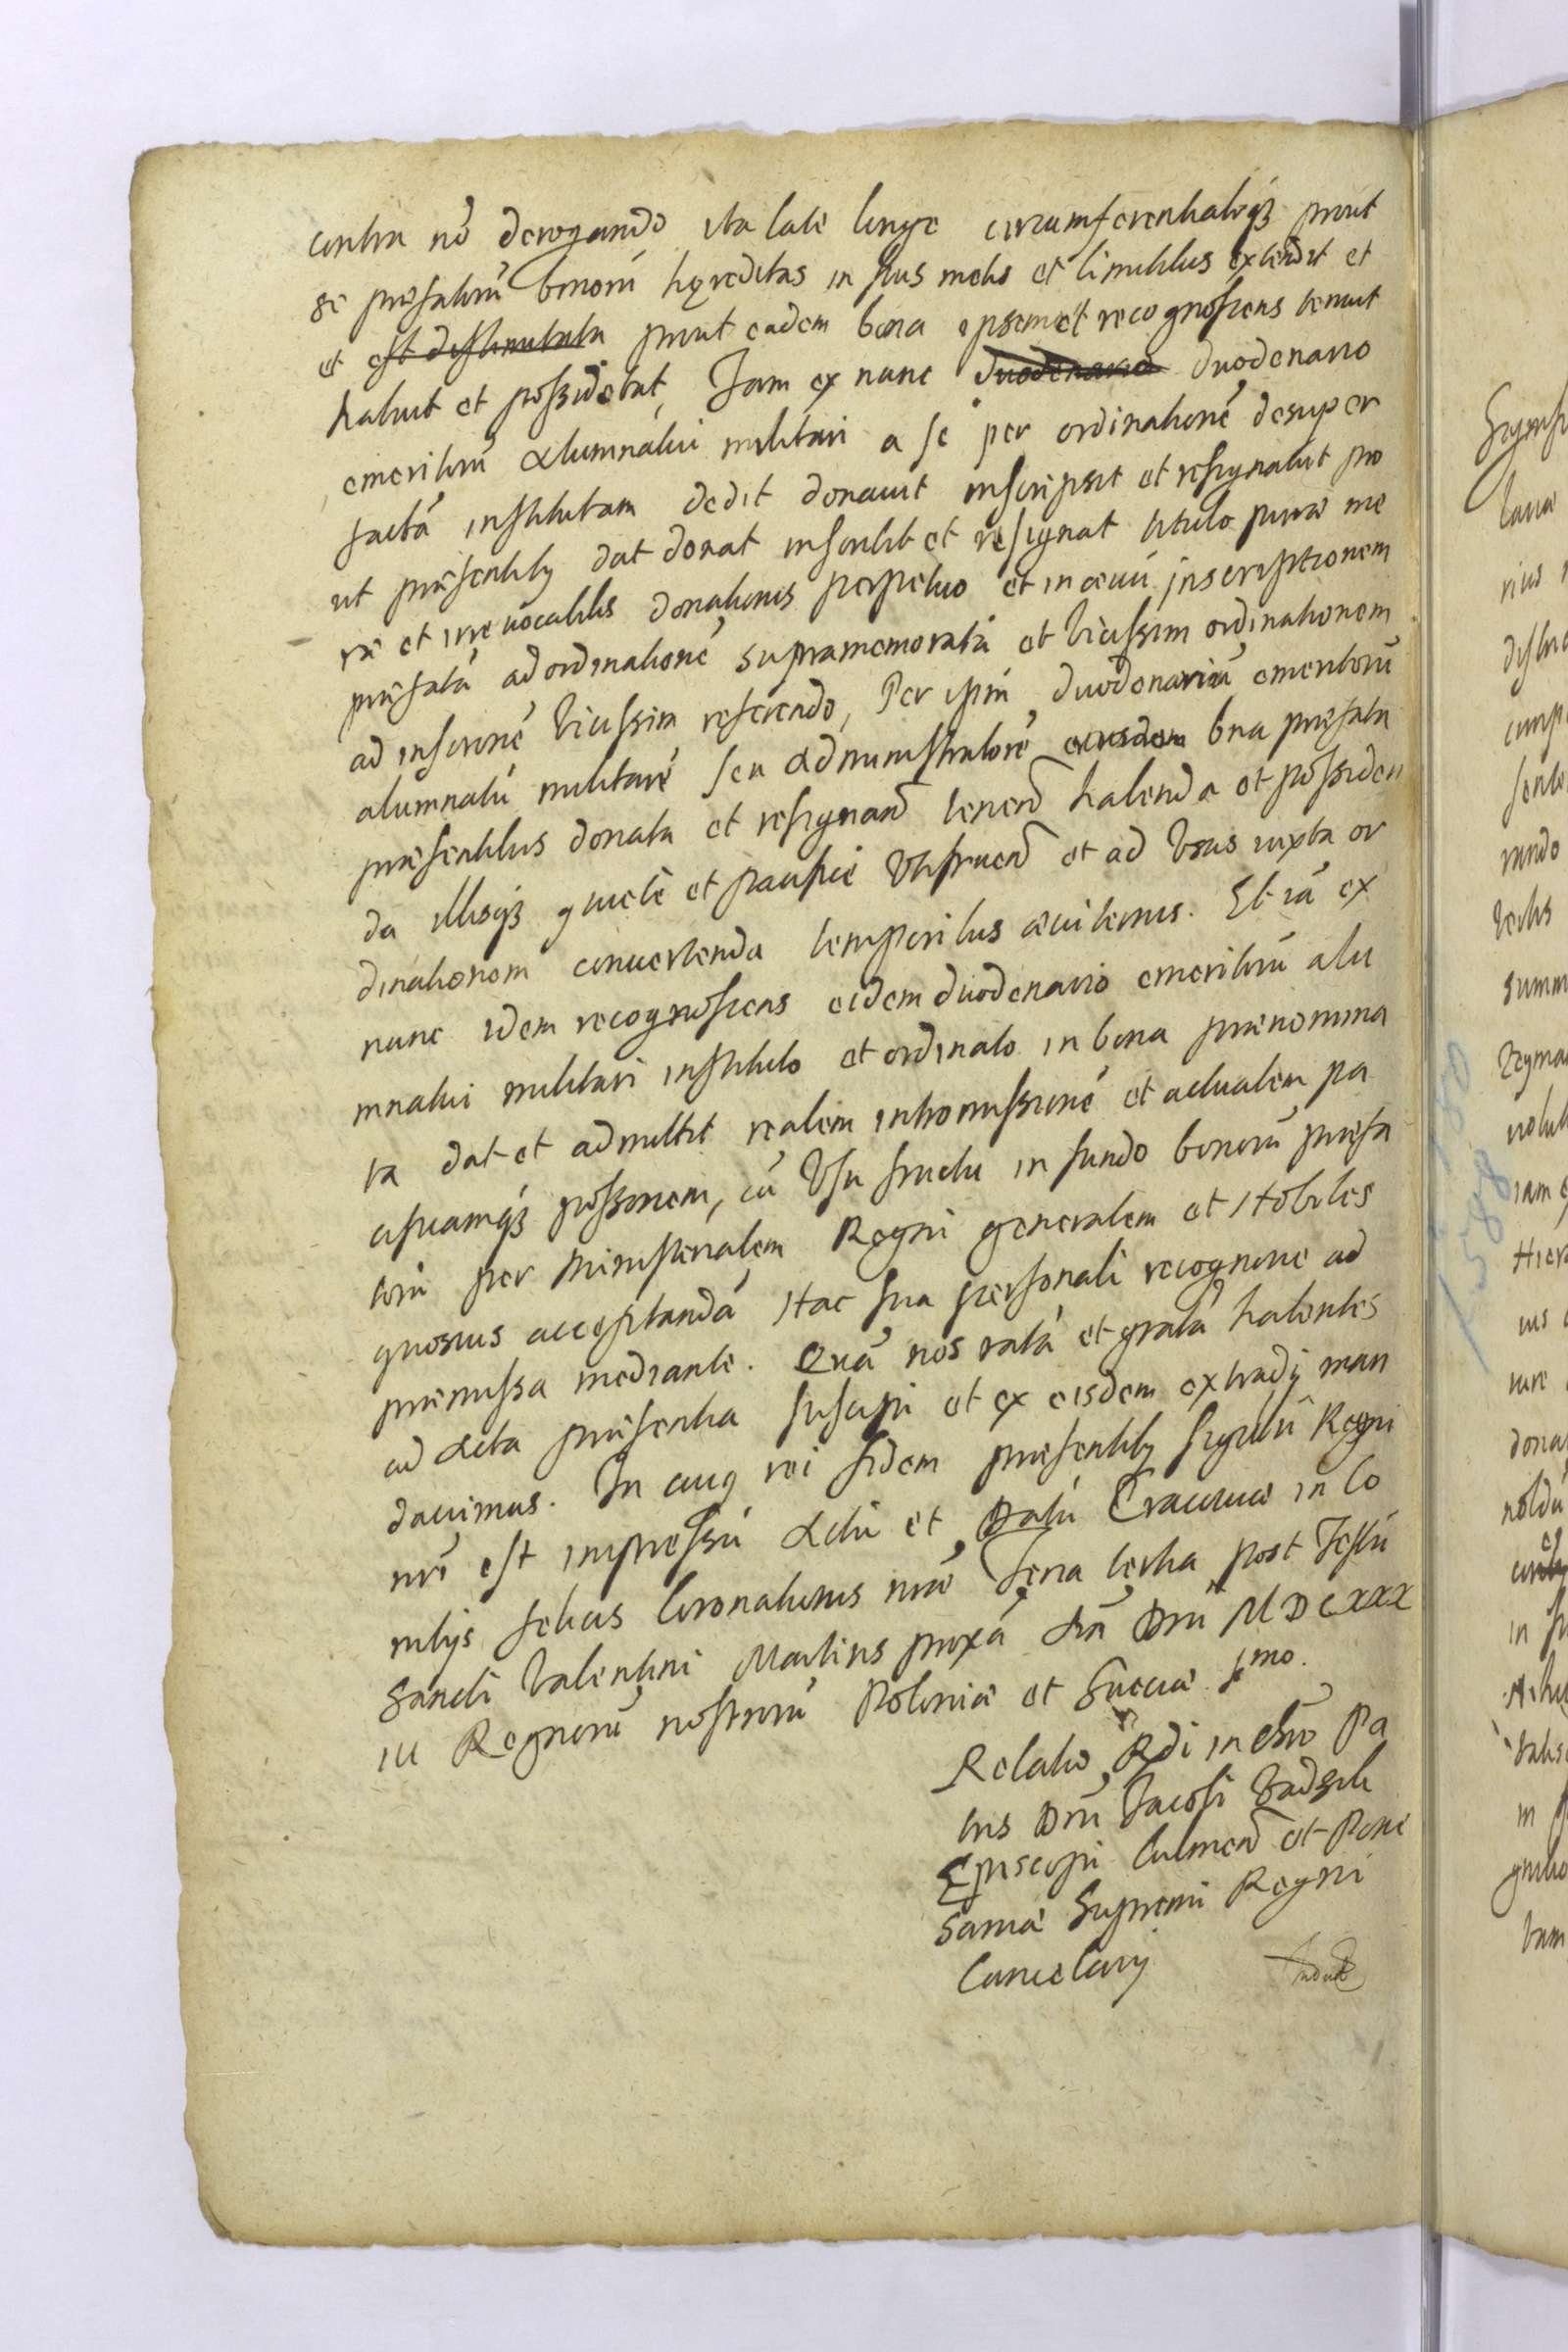 contra nõ derogando ita late longe circumferentialiqꝫ prout
se præfatorũ bonorũ hęreditas in suis metis et limitibus extendit et
et est distinutata prout eadem bona ipsemet recognoscens tenuit
habuit et possidebat, Iam ex nunc duodenario duodenario
emeritorũ alumnatui militari a se per ordinationẽ desuper
factã institutam dedit donauit inscripsit et resignauit pro
ut præsentibꝫ dat donat inscribit et resignat titulo puræ me
ræ et irreuocabilis donationis perpetuo et in æuũ inscriptionem
præfatã ad ordinationẽ supramemoratã et vicissim ordinationem
ad inscronẽ vicissim referendo, Per ipsũ duodenariũ emeritorũ
alumnatũ militarẽ seu administratorẽ eiusdem bna præfata
præsentibus donata et resignand tenend habenda et possiden
da illisqꝫ quiete et pacifice vtifruend et ad vsus iuxta or
dinationem conuertenda temporibus æuiternis. Et iã ex
nunc idem recognoscens eidem duodenario emeritorũ alu
mnatui militari instituto et ordinato in bona prænomina
ta dat et admittit realem intromissionẽ et actualem pa
cificamqꝫ possionem, cũ vsu fructu in fundo bonorũ præfa
torũ per Ministerialem Regni generalem et Nobiles
quosuis acceptandã Hac sua personali recognone ad
præmissa mediante. Quã nos ratã et gratã habentes
ad acta præsentia suscipi et ex eisdem extradij man
dauimus. In cuiꝫ rei fidem præsentibꝫ sigillũ Regni
nrĩ est impressũ Actũ et Datũ Cracouiæ in Co
mitijs felicis Coronationis nræ Feria tertia post Festũ
Sancti Valentini Martiris proxã Año Dnĩ MDCXXX
III Regnorũ nostrorũ Poloniæ et Sueciæ Imo.
Relatio Rdi in Chro Pa
tris Dnĩ Jacobi Zadzik
Episcopi Culmen et Pome
saniæ Supremi Regni
Cancelarij